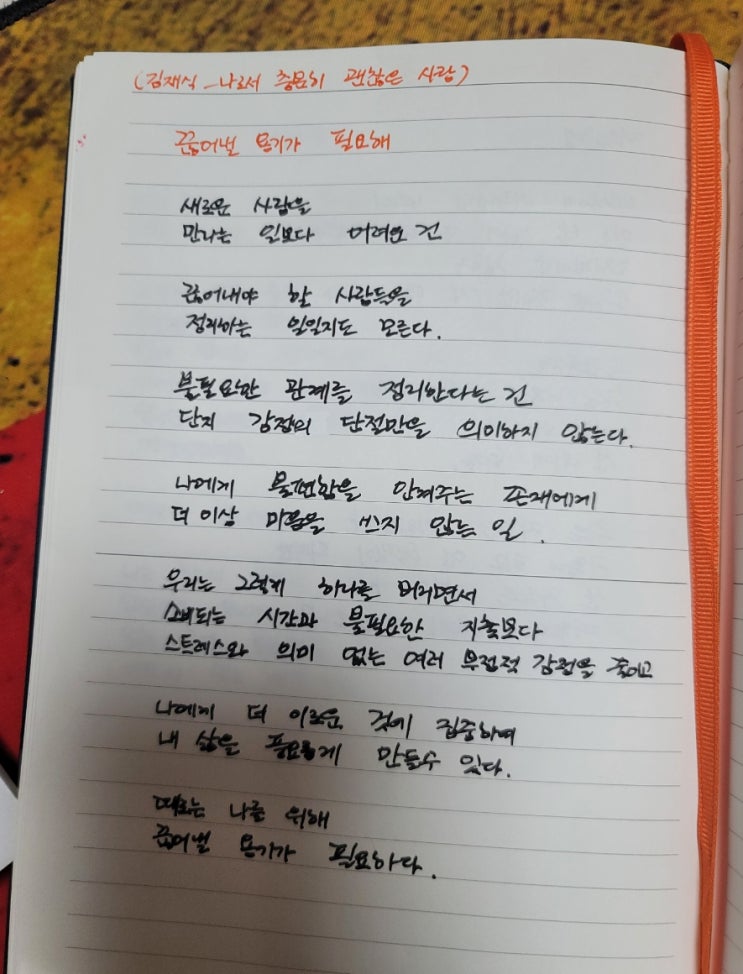 (김재식 _ 나로서 충분히 괜찮은 사람)
끊어낼 용기가 필요해
새로운 사람을
만나는 일보다 어려운 건
끊어내야 할 사람들을
정리하는 일일지도 모른다.
불필요한 관계를 정리한다는 건
단지 감정의 단절만을 의미하지 않는다.
나에게 불편함을 안겨주는 존재에게
더 이상 마음을 쓰지 않는 일.
우리는 그렇게 하나를 버리면서
소비되는 시간과 불필요한 지출보다
스트레스와 의미 없는 여러 부정적 감정을 줄이고
나에게 더 이로운 것에 집중하며
내 삶을 풍요롭게 만들수 있다.
때로는 나를 위해
끊어낼 용기가 필요하다.